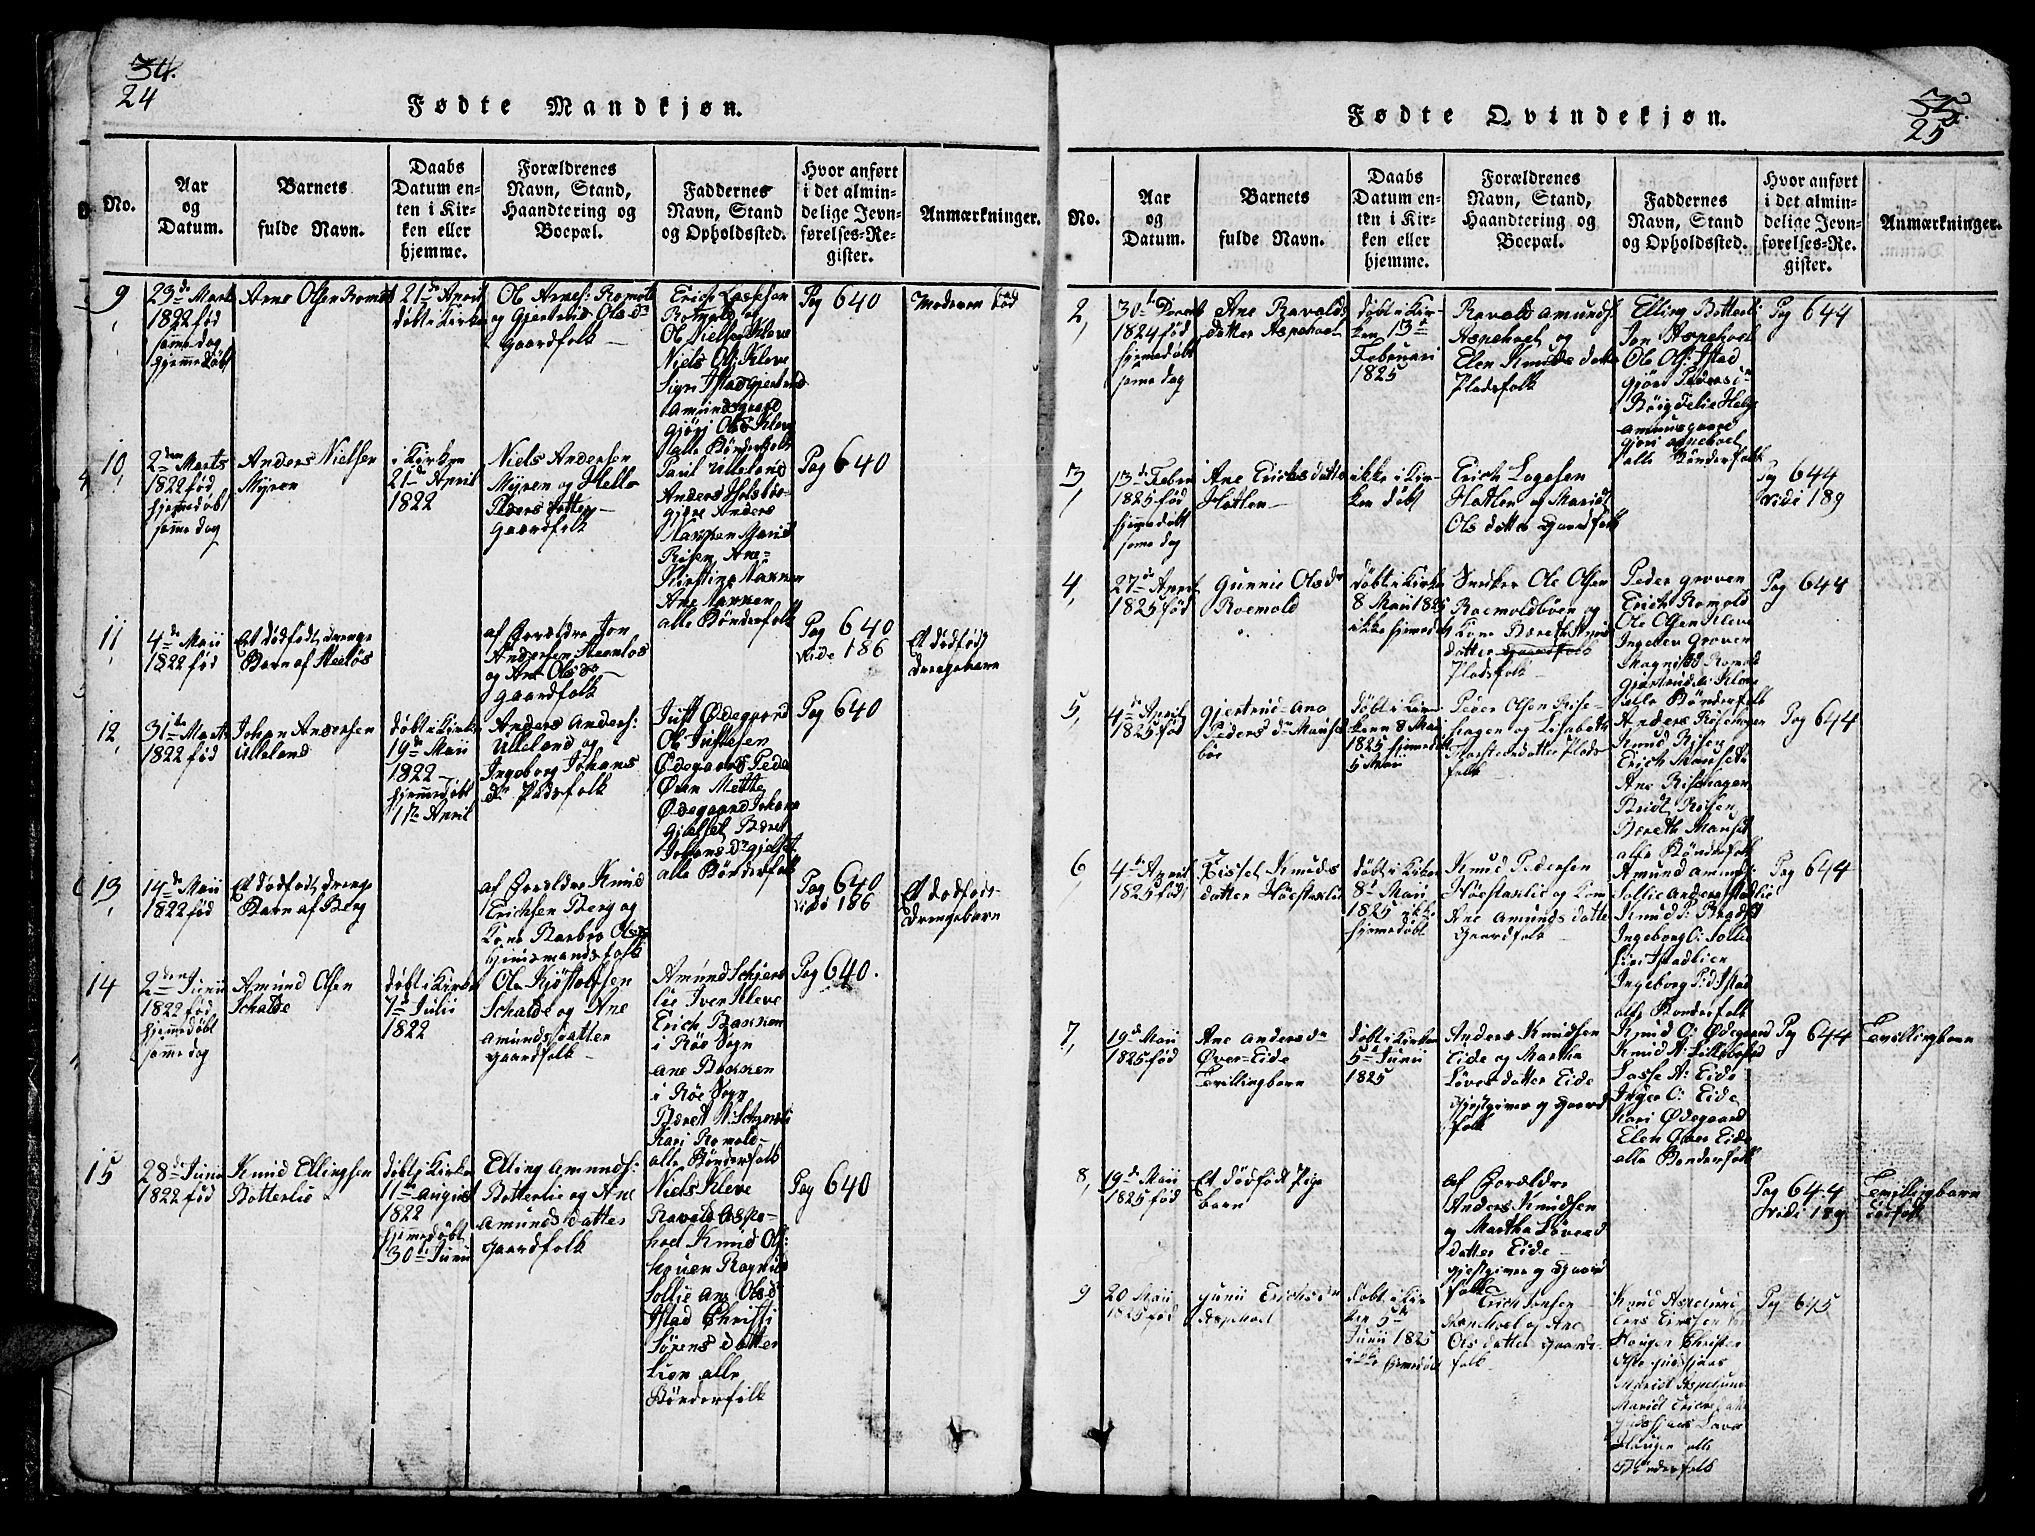 34.
24
Fødte Mandkjøn.
No.
Aar
og
Datum.
Barnets
fulde Navn.
Daabs
Datum en-
ten i Kir-
ken eller
hjemme.
Forældrenes
Navn, Stand,
Haandtering og
Boepæl.
Faddernes
Navn, Stand
og Opholdssted.
Hvor anført
i det almin-
delige Jevn-
førelses-Re-
gister.
Anmærkninger.
9,
23de Marts
1822 fød
samme dag
hjemmedøbt
Arne Olsen Romol
21de April
døbt i Kirke
Ole Arnes: Romol
og Gjertrud Ols dr
Gaardfolk
Erich
Romold og
Ole Nielsen Kleve
Niels Ols: Kleve
Sigri Istad Gjertrud
Amundsgaard
Gjøri Olsd Kleve
alle Bønderfolk
Pag 640
Moderen død
10,
2den Marts
1822 fød
hjemmedøbt
samme dag
Anders Nielsen
Myren
i Kirken
21de April
1822
Niels Andersen
Myren og
Peders datter
Gaardfolk
Paul Ulleland
Anders
Anders
Nakken Marit
Risen Ane
Kirstine Nakken
Ane Nakken
alle Bønderfolk
Pag 640
11,
4de Maii
1822 fød
Et dødfødt drenge
Barn af
af Forældre Jon
Andersen
og Ane Ols dr
Gaardfolk
Pag 640
Vide 186
Et dødfød
Drengebarn
12,
31te Marts
1822 fød
Johan Andersen
Ulleland
døbt i Kirke
19de Maii
1822
hjemmedøbt
17de April
Anders Anders:
Ulleland og
Ingeborg Johans
dr Pladsfolk
Just Ødegaard
Ole Justesen
Ødegaard Peder
Øren Mette
Ødegaard Johan
Gjelset Beret
Johans dr Gjelset
alle Bønderfolk
Pag 640
13,
14de Maii
1822 fød
Et dødfødt drenge
Barn af Berg
af Forældre Knud
Erichsen Berg og
Kone Barbro Ols dr
Huusmandsfolk
Pag 640
Vide 186
Et dødfødt
Drengebarn
14
2den Junii
1822 fød
hjemmedøbt
samme dag
Amund Olsen
Schalde
døbt i Kirke
7de Julii
1822
Ole Kjøstolfsen
Schalde og Ane
Amunds datter
Gaardfolk
Amund
lie Iver Kleve
Erich Bakken
i Røe Sogn
Ane Bakken
i Røe Sogn
Beret
Kari Romold
alle Bønderfolk
Pag 640.
15
28de Junii
1822 fød
Knud Ellingsen
Botterlie
døbt i Kirke
11te August
1822
hjemmedøbt
30te Junii
Elling Amunds:
Botterlie og Ane
Amunds datter
Gaardfolk
Niels Kleve
Ravald Aspe-
hoel Knud Ols:
Ragnild
Sollie Ane Olsd
Istad Christi
Sørens datter
Lien alle
Bønderfolk
Pag 640
35.
25
Fødte Qvindekjøn.
No.
Aar
og
Datum.
Barnets
fulde Navn.
Daabs
Datum en-
ten i Kir-
ken eller
hjemme.
Forældrenes
Navn, Stand,
Haandtering og
Boepæl.
Faddernes
Navn, Stand
og Opholdssted.
Hvor anført
i det almin-
delige Jevn-
førelses-Re-
gister.
Anmærkninger.
2,
30te Decemb
1824 fød
hjemmedøbt
samme dag
Ane Ravalds
datter Aspehoel
døbt i Kir-
ken 13de
Februari
1825
Ravald Amunds:
Aspehoel og
Elen Knuds datter
Pladsfolk
Elling Botterli
Jon Aspehoel
Ole Ols: Istad
Gjøri Peders dr
Amunsgaard
Gjøri Aspehoel
alle Bønderfolk
Pag 644
3,
13de Febru
1825 fød
hjemmedøbt
samme dag
Ane Erichs datter
Hatlen
ikke i Kir-
ken døbt
Erich
Hatlen og Marit
Ols datter Gaardfolk
Pag 644
Vide 189
4,
27de April
1825 fød
Gunnie Ols dr
Roemold
døbt i Kirke
8 Maii 1825
ikke hjemmedøbt
Snecker Ole Olsen
Roemoldbøen og
Kone Bereth
datter Gaardfolk
Pladsfolk
Peder Groven
Erich Romold
Ole Olsen Kleve
Ingebor Groven
Magnild Romold
Gjertrud Kleve
alle Bønderfolk
Pag 644
5,
4de April
1825 fød
Gjertrud-Ana
Peders dr Mauset
bøe
døbt i Kir-
ken 8 Mai
1825 hjemmedøbt
5 Maii
Peder Olsen Rise-
hagen og Lisabeth
datter Plads
folk
Anders Risehagen
Knud Risen
Erich Mauset
Ane Risehagen
Beret Risen
Bereth Mauset
alle Bønderfolk
Pag 644
6,
4de April
1825 fød
Sisset Knuds
datter
døbt i Kirke
8de Maii
1825 ikke
hjemmedøbt
Knud Pedersen
og Kone
Ane Amunds datter
Gaardfolk
Amund Amunds:
Sollie Anders
Knud
Ingeborg O: Sollie
Siri
Ingeborg P:d Istad
alle Bønderfolk
Pag 644
7,
19de Maii
1825 fød
Ane Anders dr
Øver-Eide
Tvillingbarn
døbt i Kirke
5te Junii
1825
Anders Knudsen
Eide og Martha
datter Eide
Gjestgiver og Gaard
folk
Knud O: Ødegaard
Knud A:
Lasse A: Eide
Inger O: Eide
Kari Ødegaard
Elen Øver Eide
alle Bønderfolk
Pag 644
Tvillingbarn
8,
19de Maii
1825 fød
Et dødfødt Pige
barn
af Forældre
Anders Knudsen
og Martha
datter Eide
Gjestgiver og Gaard
folk
Pag 644
Vide 189
Tvillingbarn
dødfødt
9
20 Maii
1825 fød
Gunii Erichs dr
Aspehoel
døbt i Kir
ken 5te
Junii 1825
ikke hjemmedøbt
Erich Jonsen
Aspehoel og Ane
Ols datter Gaard-
folk
Knud
Marit
Marit Erichs
alle
Bønderfolk
Pag 645